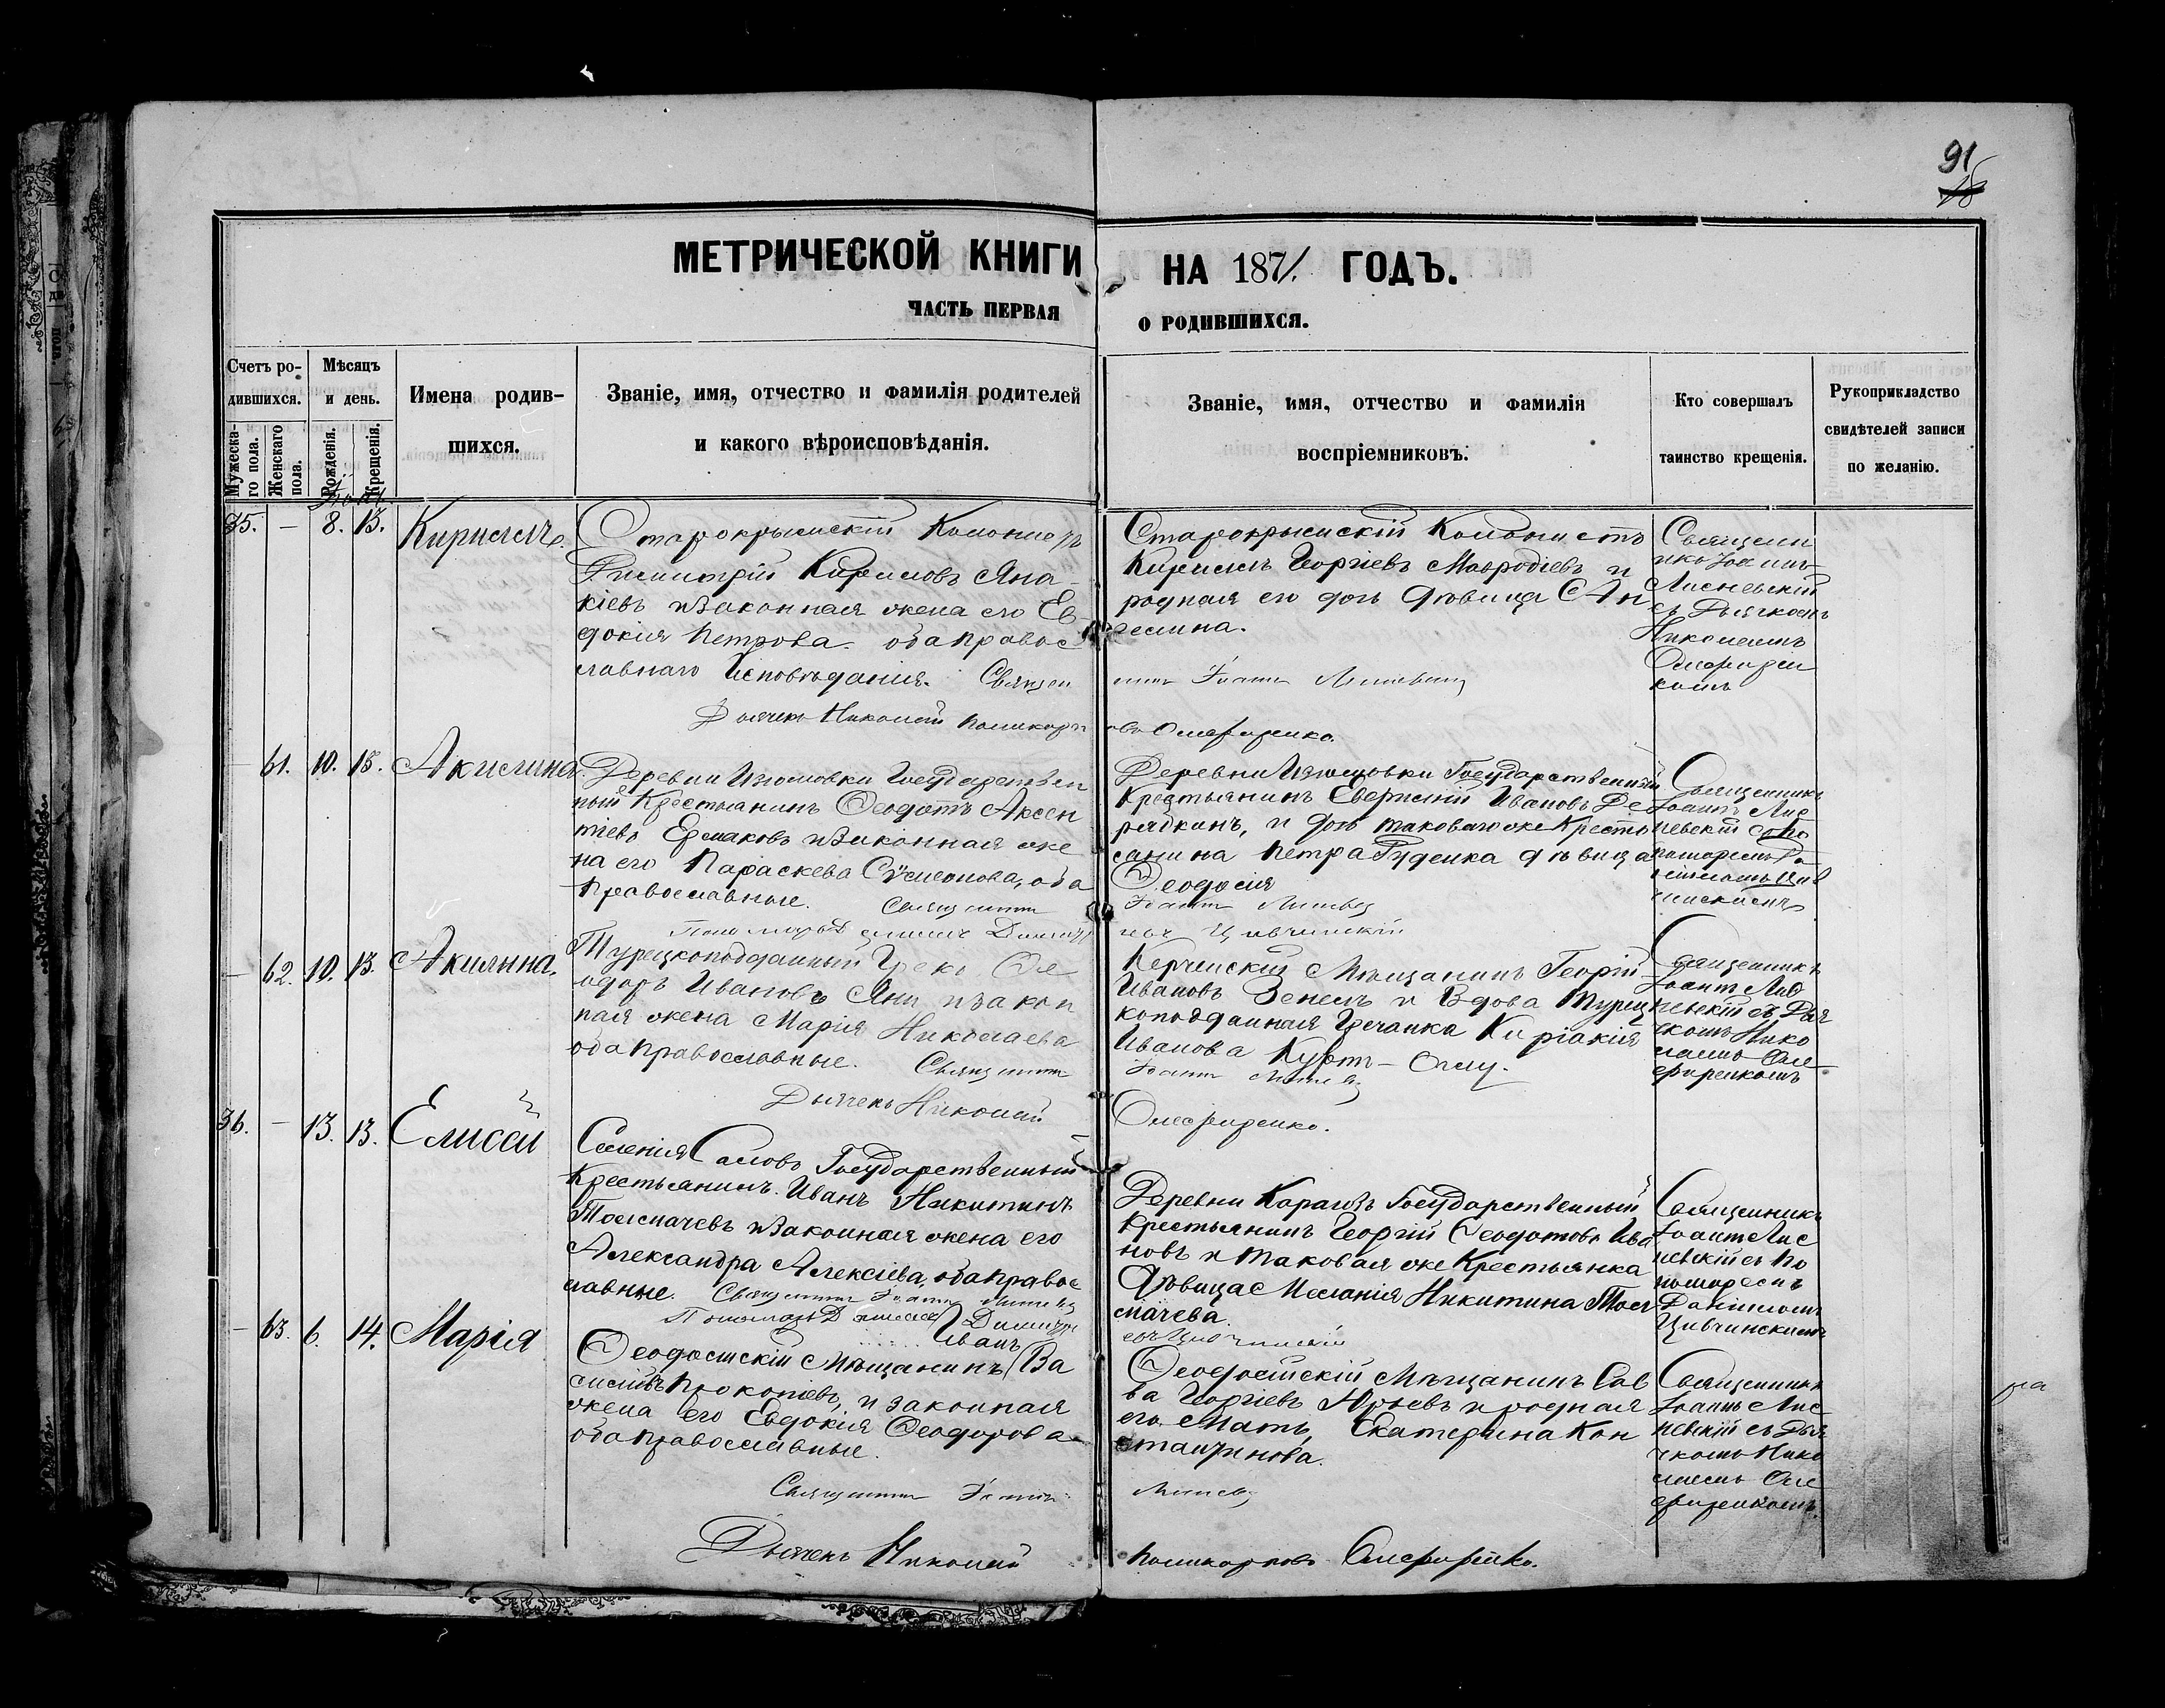 91
МЕТРИЧЕСКОЙ КНИГИ НА 1871 ГОДЪ.
ЧАСТЬ ПЕРВАЯ О РОДИВШИХСЯ.
Счетъ ро-
дившихся.
Мужеска-
го пола.
Женскаго
пола.
Мѣсяцъ
и день.
Рожденія.
Крещенія.
Имена родив-
шихся.
Званіе, имя, отчество и фамилія родителей
и какого вѣроисповѣданія.
Званіе, имя, отчество и фамилія
воспріемниковъ.
Кто совершалъ
таинство крещенія.
Рукоприкладство
свидѣтелей записи
по желанію.
35. — 8. 13. Кириллъ.
Старокрымскій Колонистъ
Димитрій Кириловъ Яна-
кіевъ и законная жена его Ев
докія Петрова. оба Правос
лавнаго Исповѣданія. Священ
Дьячекъ Николай Поликарп
Старокрымскій Колонистъ
Кириллъ Георгіевъ Мавродіевъ и
родная его дочь Дѣвица Ан
гелина.
никъ Іоаннъ
овъ Олефиренко.
Священ
никъ Іоаннъ
Лисневскій
съ Дьячкомъ
Николаемъ
Олефирен
комъ
— 61. 10. 13. Акилина.
Деревни Изюмовки Государствен
ный Крестьянинъ Ѳеодотъ Аксен
тіевъ Ермаковъ и законная же
на его Параскева Сѵмеонова, оба
Православные. Священникъ
Деревни Изюмовки Государственный
Крестьянинъ Евгеній Ивановъ Де
рядкинъ, и дочь таковаго же Кресть
янина Петра Руденка дѣвица
Ѳеодосія
Іоаннъ
Цивчинскій
Священникъ
Іоаннъ Лис
невскій съ По
номаремъ Да
ніиломъ Цив
чинскимъ
— 62. 10. 13. Акилина.
Турецкоподданный Грекъ Ѳе
одоръ Ивановъ Яни и закон
ная жена Марія Николаева
оба Православные. Священникъ
Дьячекъ Николай
Керченскій Мѣщанинъ Георгій
Ивановъ Зенемъ и Вдова Турец
коподданная Гречанка Киріакія
Иванова Куртъ-Оглу.
Іоаннъ
Олефиренко.
Священникъ
Іоаннъ Лис
невскій съ Дья
чкомъ Нико
лаемъ Оле
фиренкомъ
36. — 13. 13. Елисей
Селенія Саловъ Государственный
Крестьянинъ Иванъ Никитинъ
Толмачевъ и законная жена его
Александра Алексіева, оба Правос
лавные. Священникъ Іоаннъ
Пономарь Даніилъ
Деревни Карагозъ Государственный
Крестьянинъ Георгій Ѳеодотовъ Ива
новъ и таковая же Крестьянка
Дѣвица Меланія Никитина Тол
мачева.
Священникъ
Іоаннъ Лис
невскій съ По
номаремъ
Даніиломъ
Цивчинскимъ
— 63. 6. 14. Марія
Иванъ
Ѳеодосійскій Мѣщанинъ (Ва
силій Прокопіевъ, и законная
жена его Евдокія Ѳеодорова
оба Православные.
Священникъ Іоаннъ
Дьячекъ Николай
Ѳеодосійскій Мѣщанинъ Сав
ва Георгіевъ Юрьевъ и родная
его Мать, Екатерина Кон
стантинова.
Поликарповъ Олефиренко.
Священникъ
Іоаннъ Лис
невскій съ Дья
чкомъ Нико
лаемъ Оле
фиренкомъ.